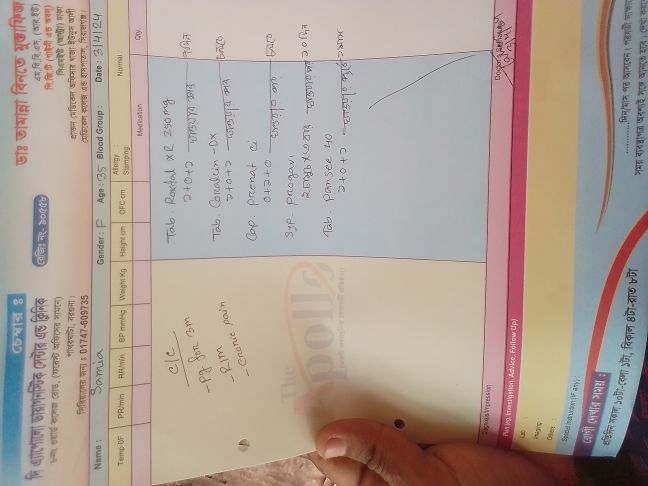 চেম্বার ঃ
দি এ্যাপোলো ডায়াগনস্টিক সেন্টার এন্ড ক্লিনিক
রেজিঃ নং- ১০৫৫৮
কলেজ রোড, (ফরেস্ট অফিসের সামনে)
পাথরঘাটা, বরগুনা।
সিরিয়ালের জন্য : 01747-609735
ডাঃ তামান্না বিনতে মুস্তাফিজ
এম,বি,বি,এস, (আর,ইউ)
পি,জি,টি (গাইনী এন্ড অবস্)
সিএমইউ (আল্ট্রা) ঢাকা
প্রাক্তন মেডিকেল অফিসার খাজা ইউনুস আলী
মেডিকেল কলেজ এন্ড হাসপাতাল, সিরাজগঞ্জ।
Name : Samia Gender : F Age : 35 Blood Group : Date : 3/4/24
Temp 0F PR/min RR/min BP mmHg Weight Kg Height cm OFC cm Allergy : Stamping: Normal :
Medication Qty.
C/C
- Pg for 3m
- R/M
- Cronic pain
Tab. Roxtal XR 250mg
2+0+2
Tab. Coralcin -DX
2+0+2
চলবে
Cap. Prenat Ci
0+2+0
চলবে
Syp. Progavi
২০ দিন
Tab. Pansee 40
2+0+2
The Apollo
Diagnosis/Impression
Doctor's
3/4/24
Plan (eg. Investigation, Advice, Follow Up)
Lab :
Imaging :
Others :
Special Instruction (IF any) :
রোগী দেখার সময় :
প্রতিদিন সকাল ১০টা-বেলা ১টা, বিকাল ৪টা-রাত ৮টা
দিন/মাস পর আসবেন। পরবর্তী
সময় ব্যবস্থাপত্র অবশ্যই সঙ্গে আনতে হবে।